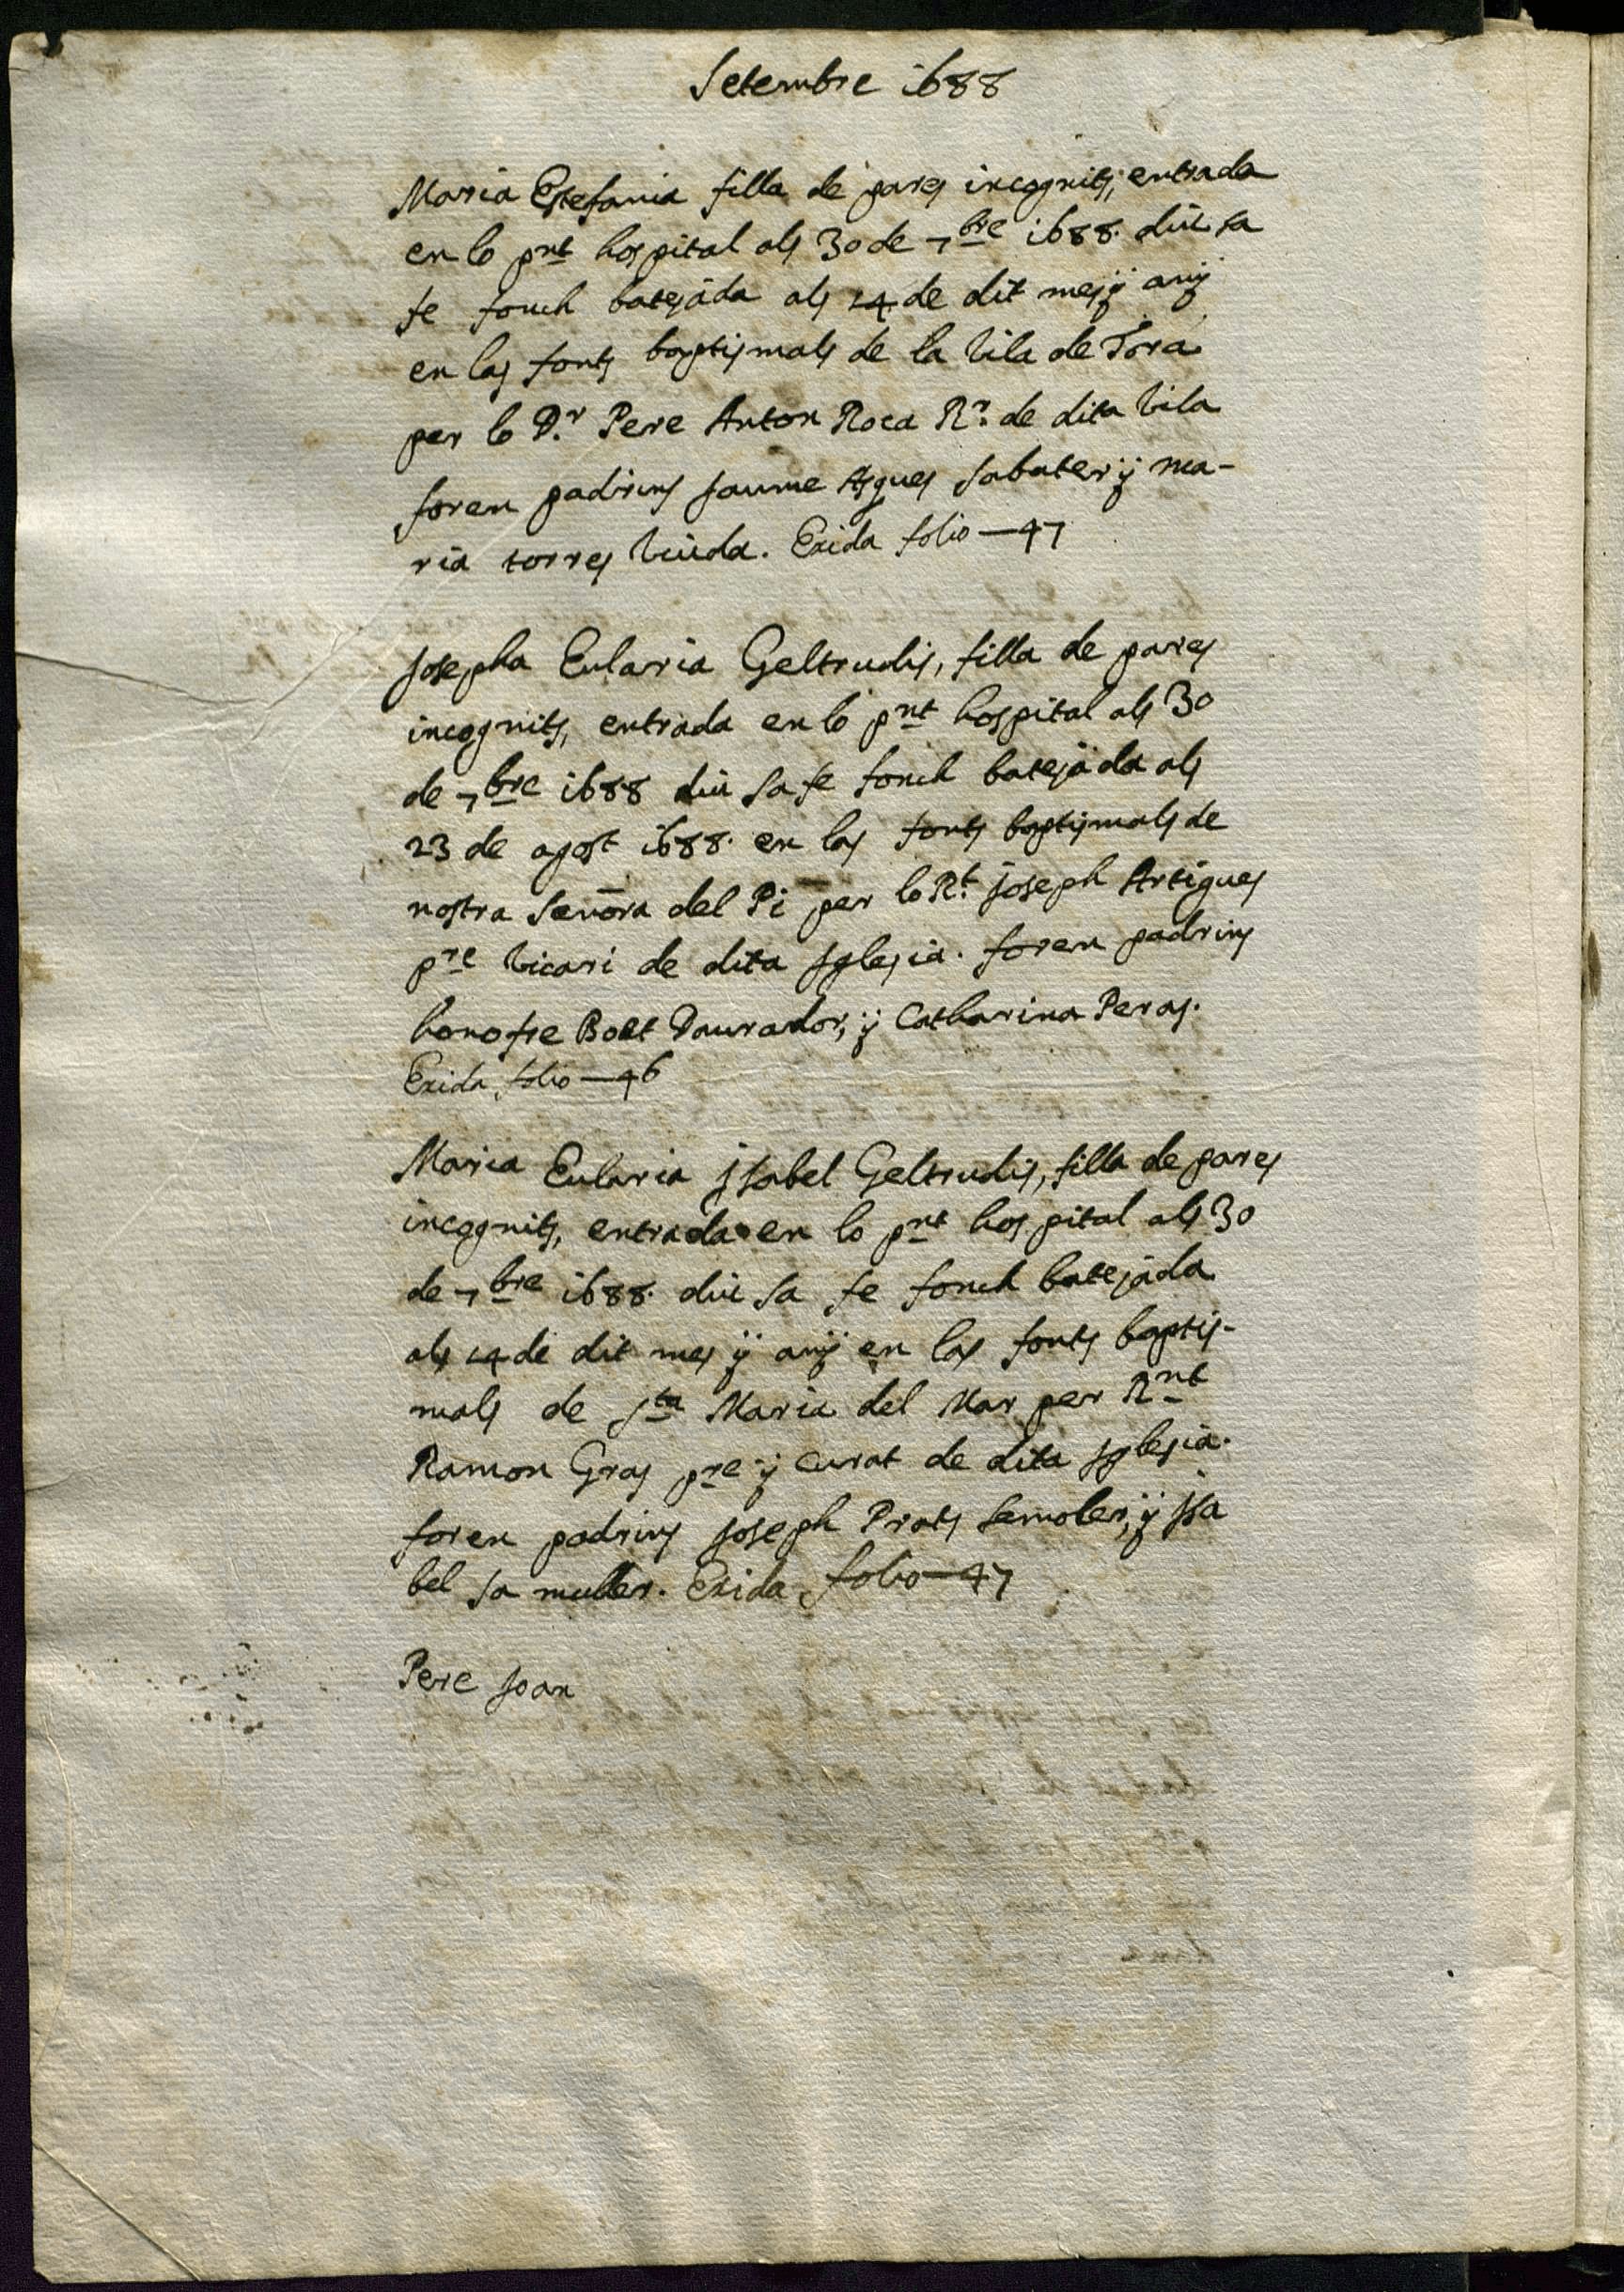 Setembre 1688
Maria Estefania filla de pares incognits, entrada
en lo pnt hospital als 30 de 7bre 1688. diu sa
fe fonch batejada als 14 de dit mes ÿ anÿ
en las fonts baptismals de la Vila de Tora
per lo Dr. Pere Anton Roca Rr. de dita Vila
foren padrins Jaume sabater ÿ Ma-
ria torres Viuda. Exida folio — 47
Josepha Eularia Geltrudis, filla de pares
incognits, entrada en lo pnt hospital als 30
de 7bre 1688 diu sa fe fonch batejada als
23 de agost 1688. en las fonts baptismals de
nostra Senora del Pi per lo Rt. Joseph Artigues
pre Vicari de dita Iglesia. foren padrins
honofre Bolt Daurador, ÿ Catharina Peras.
Exida folio — 46
Maria Eularia Isabel Geltrudis, filla de pares
incognits, entrada en lo pnt hospital als 30
de 7bre 1688. diu sa fe fonch batejada
als 14 de dit mes ÿ anÿ en las fonts baptis-
mals de Sta Maria del Mar per Rnt
Ramon Gras pre ÿ Curat de dita Iglesia.
foren padrins Joseph Prats Semoler, ÿ Isa
bel sa muller. Exida folio — 47
Pere Joan